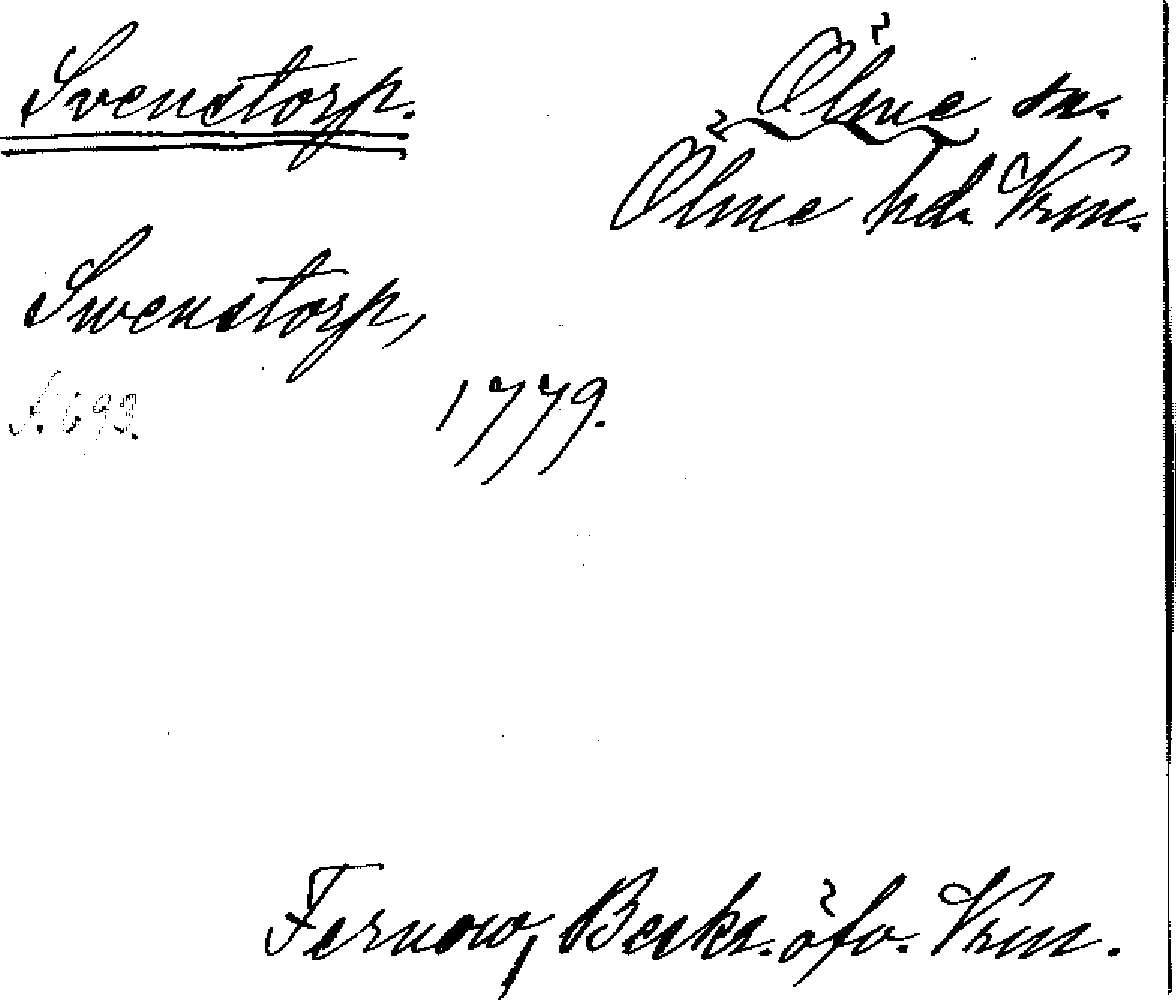 Svenstorp.
Ölme sn.
Ölme hd. Vrm.
Swenstorp,
S. 693.
1779.
Fernow, Beskr. öfv. Vrm.